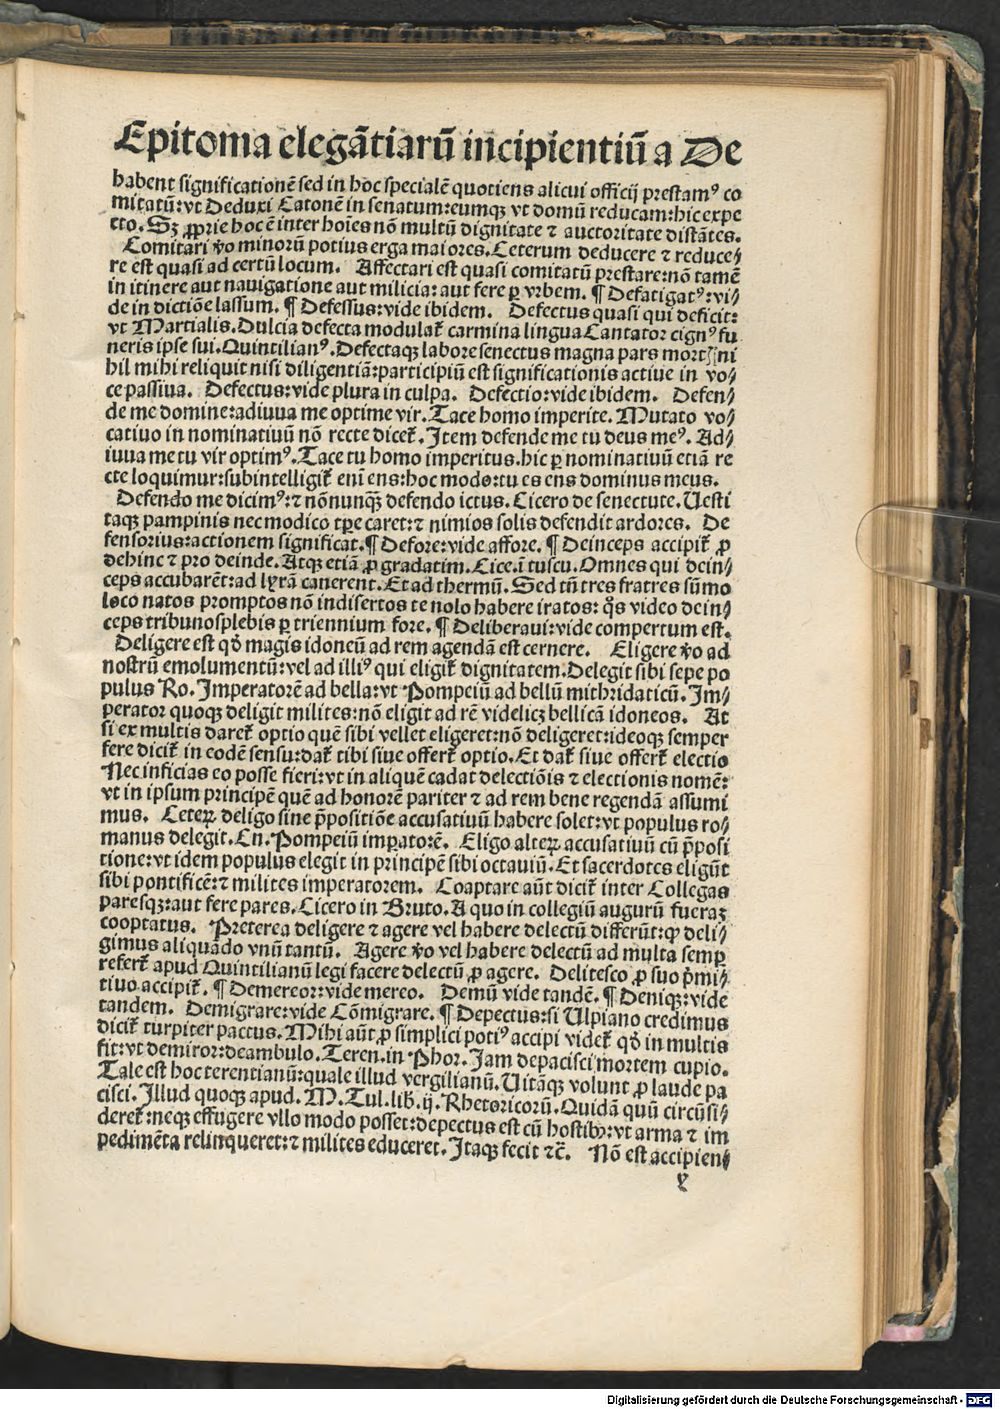 Epitoma elegātiarū incipientiū a De
habent significationē sed in hoc specialē quotiens alicui officij prestamꝰ co
mitatū: vt Deduxi Catonē in senatum: eumqꝫ vt domū reducam: hic expe
cto. Sꝫ ꝓprie hoc ē inter hoīes nō multū dignitate ⁊ auctoritate distātes.
Comitari ѷo minorū potius erga maiores. Ceterum deducere ⁊ reduce⸗
re est quasi ad certū locum. Affectari est quasi comitatū prestare: nō tamē
in itinere aut nauigatione aut milicia: aut fere ꝑ vrbem. ¶ Defatigatꝰ: vi⸗
de in dictiōe lassum. ¶ Defessus: vide ibidem. Defectus quasi qui deficit:
vt Martialis. Dulcia defecta modulat᷑ carmina lingua Cantator cignꝰ fu
neris ipse sui. Quintilianꝰ. Defectaqꝫ labore senectus magna pars mort ni
hil mihi reliquit nisi diligentiā: participiū est significationis actiue in vo⸗
ce passiua. Defectus: vide plura in culpa. Defectio: vide ibidem. Defen⸗
de me domine: adiuua me optime vir. Tace homo imperite. Mutato vo⸗
catiuo in nominatiuū nō recte dicet᷑. Item defende me tu deus meꝰ. Ad⸗
iuua me tu vir optimꝰ. Tace tu homo imperitus. hic ꝑ nominatiuū etiā re
cte loquimur: subintelligit᷑ enī ens: hoc modo: tu es ens dominus meus.
Defendo me dicimꝰ: ⁊ nōnunqꝫ̄ defendo ictus. Cicero de senectute. Uesti
taqꝫ pampinis nec modico tꝑe caret: ⁊ nimios solis defendit ardores. De
fensorius: actionem significat. ¶ Defore: vide affore. ¶ Deinceps accipit᷑ ꝓ
dehinc ⁊ pro deinde. Atqꝫ etiā ꝓ gradatim. Cice. ī tuscu. Omnes qui dein⸗
ceps accubarēt: ad lyrā canerent. Et ad thermū. Sed tn̄ tres fratres sūmo
loco natos promptos nō indisertos te nolo habere iratos: q̄s video dein⸗
ceps tribunosplebis ꝑ triennium fore. ¶ Deliberaui: vide compertum est.
Deligere est qđ magis idoneū ad rem agendā est cernere. Eligere ѷo ad
nostrū emolumentū: vel ad illiꝰ qui eligit᷑ dignitatem. Delegit sibi sepe po
pulus Ro. Imperatorē ad bella: vt Pompeiū ad bellū mithridaticū. Im⸗
perator quoqꝫ deligit milites: nō eligit ad rē videlicꝫ bellicā idoneos. At
si ex multis daret᷑ optio quē sibi vellet eligeret: nō deligeret: ideoqꝫ semper
fere dicit᷑ in eodē sensu: dat᷑ tibi siue offert᷑ optio. Et dat᷑ siue offert᷑ electio
Nec inficias eo posse fieri: vt in aliquē cadat delectiōis ⁊ electionis nomē:
vt in ipsum principē quē ad honorē pariter ⁊ ad rem bene regendā assumi
mus. Ceteꝝ deligo sine p̄positiōe accusatiuū habere solet: vt populus ro⸗
manus delegit. Cn. Pompeiū imꝑatorē. Eligo alteꝝ accusatiuū cū p̄posi
tione: vt idem populus elegit in principē sibi octauiū. Et sacerdotes eligūt
sibi pontificē: ⁊ milites imperatorem. Coaptare aūt dicit᷑ inter Collegas
paresqꝫ: aut fere pares. Cicero in Bruto. A quo in collegiū augurū fueraꝫ
cooptatus. Preterea deligere ⁊ agere vel habere delectū differūt: qꝙ deli⸗
gimus aliquādo vnū tantū. Agere ѷo vel habere delectū ad multa semꝑ
refert᷑ apud Quintilianū legi facere delectū ꝓ agere. Delitesco ꝓ suo p̄mi⸗
tiuo accipit᷑. ¶ Demereor: vide mereo. Demū vide tandē. ¶ Deniqꝫ: vide
tandem. Demigrare: vide Cōmigrare. ¶ Depectus: si Ulpiano credimus
dicit᷑ turpiter pactus. Mihi aūt ꝓ simplici potiꝰ accipi videt᷑ qđ in multis
fit: vt demiror: deambulo. Teren. in Phor. Iam depacisci mortem cupio.
Tale est hoc terentianū: quale illud vergilianū. Uitāqꝫ volunt ꝓ laude pa
cisci. Illud quoqꝫ apud. M. Tul. lib. ij. Rhetoricorū. Quidā quū circūsi⸗
deret᷑: neqꝫ effugere vllo modo posset: depectus est cū hostibꝰ: vt arma ⁊ im
pedimēta relinqueret: ⁊ milites educeret. Itaqꝫ fecit ⁊c̄. Nō est accipien⸗
y
Digitalisierung gefördert durch die Deutsche Forschungsgemeinschaft - DFG